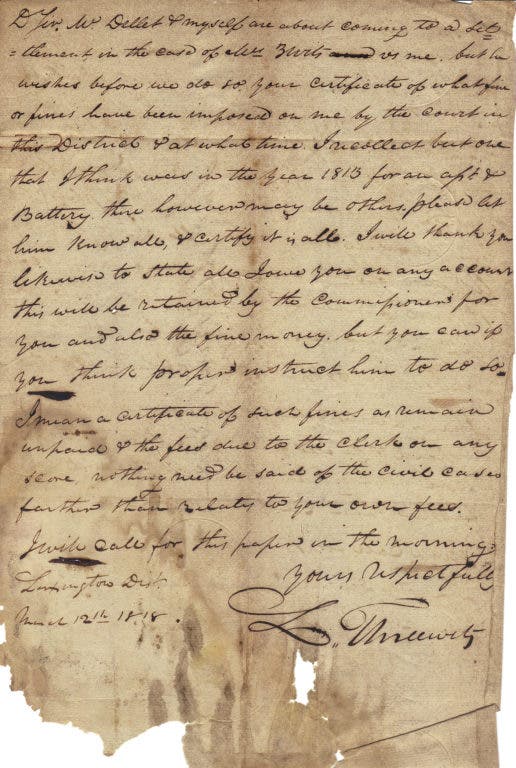 Dr Sir, Mr Dellet & myself are about coming to a set
=tlement in the case of Mrs 3wits and vs me. but he
wishes before we do so your certificate of what fine
or fines have been imposed on me by the court in
this District & at what time. I recollect but one
that I think was in the year 1813 for an asst &
Battery. there however may be others, please let
him know all, & certify it is all. I will thank you
likewise to state all I owe you on any account
this will be retained by the Commissioner for
you and also the fine money. but you can if
you think proper instruct him to do so.
I mean a certificate of such fines as remain
unpaid & the fees due to the clerk on any
score, nothing need be said of the civil cases
farther than relates to your own fees.
I will call for this paper in the morning.
yours respectfully
Lexington Dist.
March 12th 1818.
L. Threewits